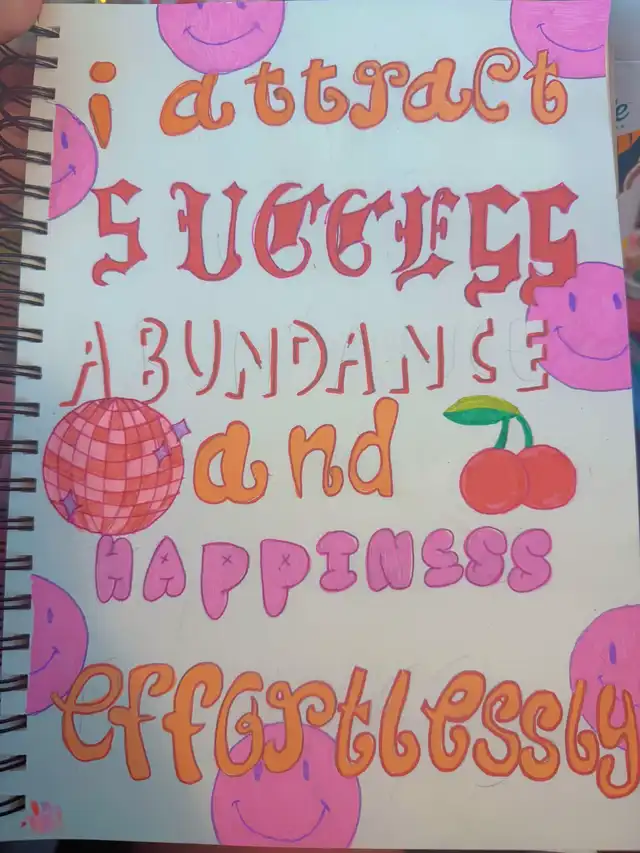 i attract
SUCCESS
ABUNDANCE
and
HAPPINESS
effortlessly